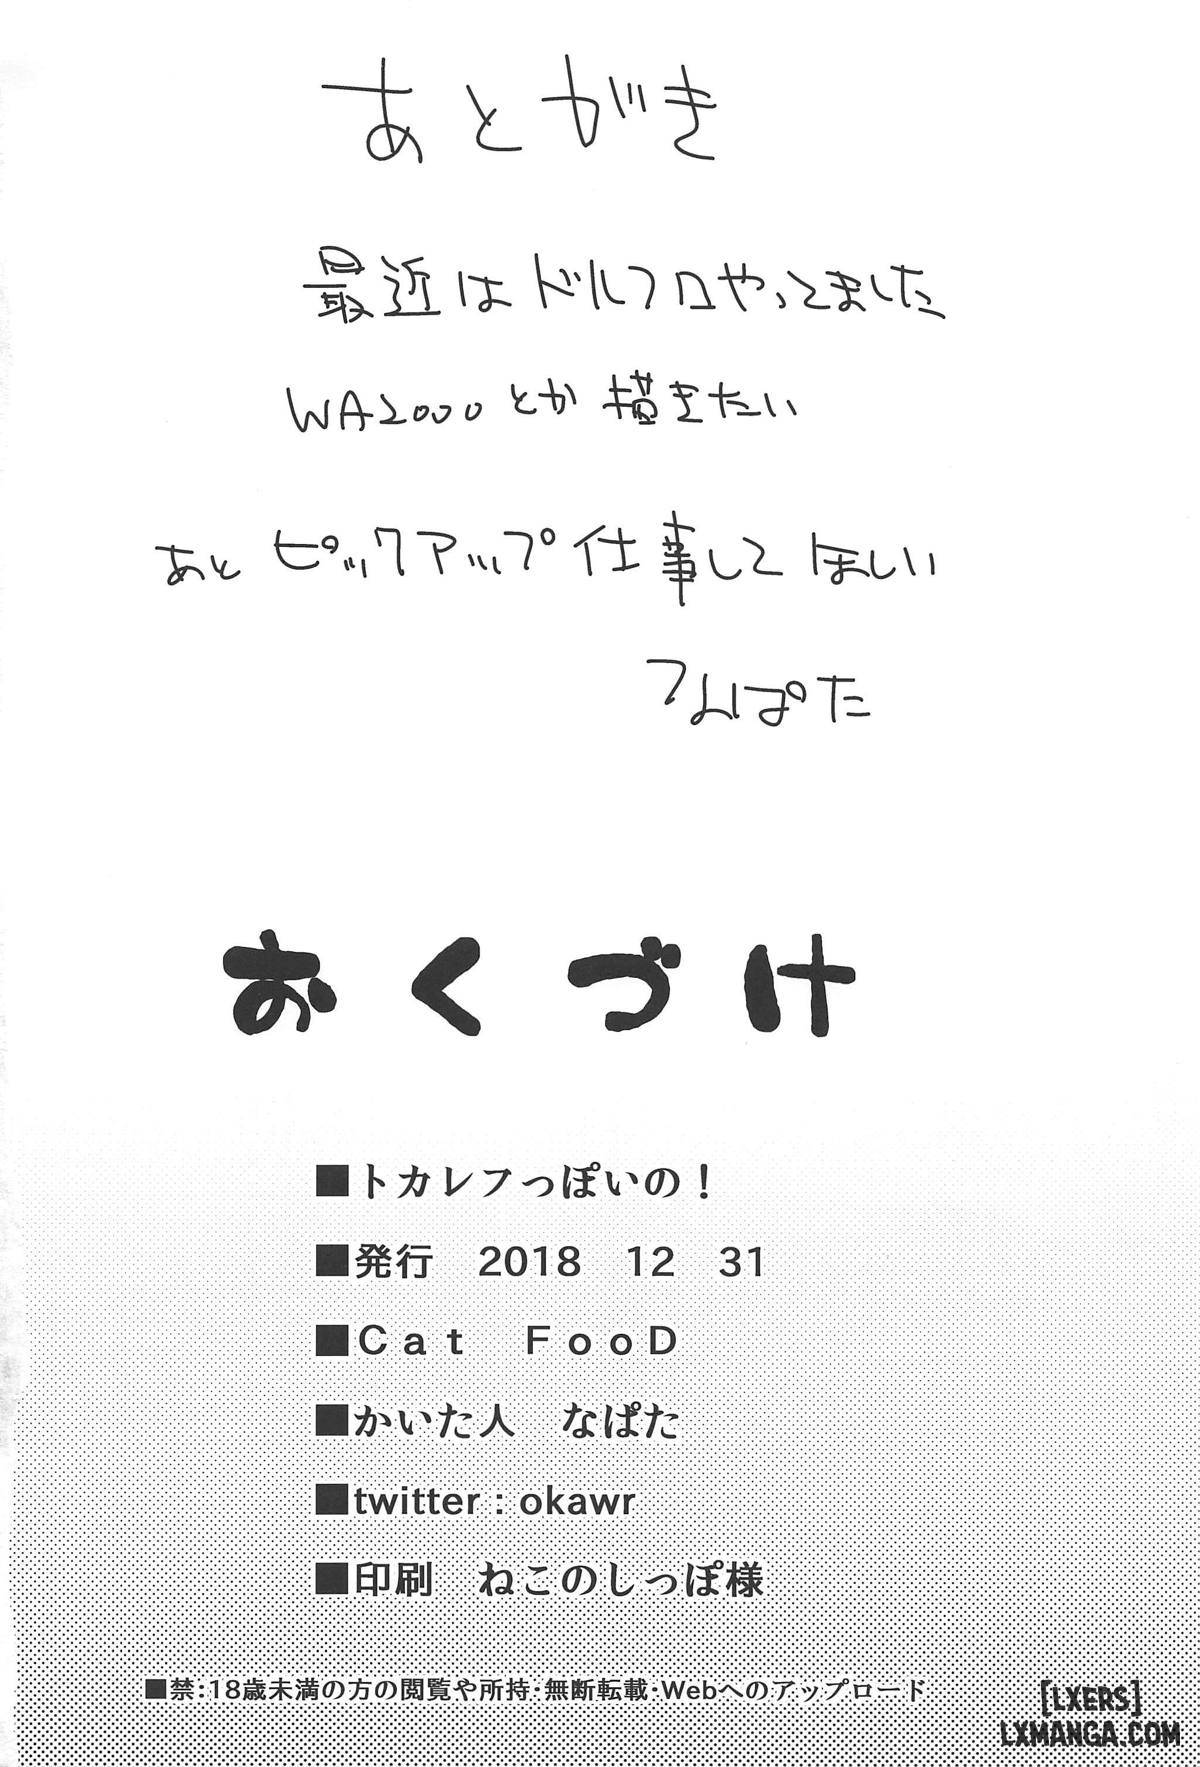 あとがき
最近はドルフロやってました
WA2000とか描きたい
あとピックアップ仕事してほしい
なぱた
おくづけ
■トカレフっぽいの！
■発行　2018　12　31
■Ｃａｔ　ＦｏｏＤ
■かいた人　なぱた
■twitter：okawr
■印刷　ねこのしっぽ様
■禁:18歳未満の方の閲覧や所持・無断転載・Webへのアップロード
[LXERS]
LXMANGA.COM